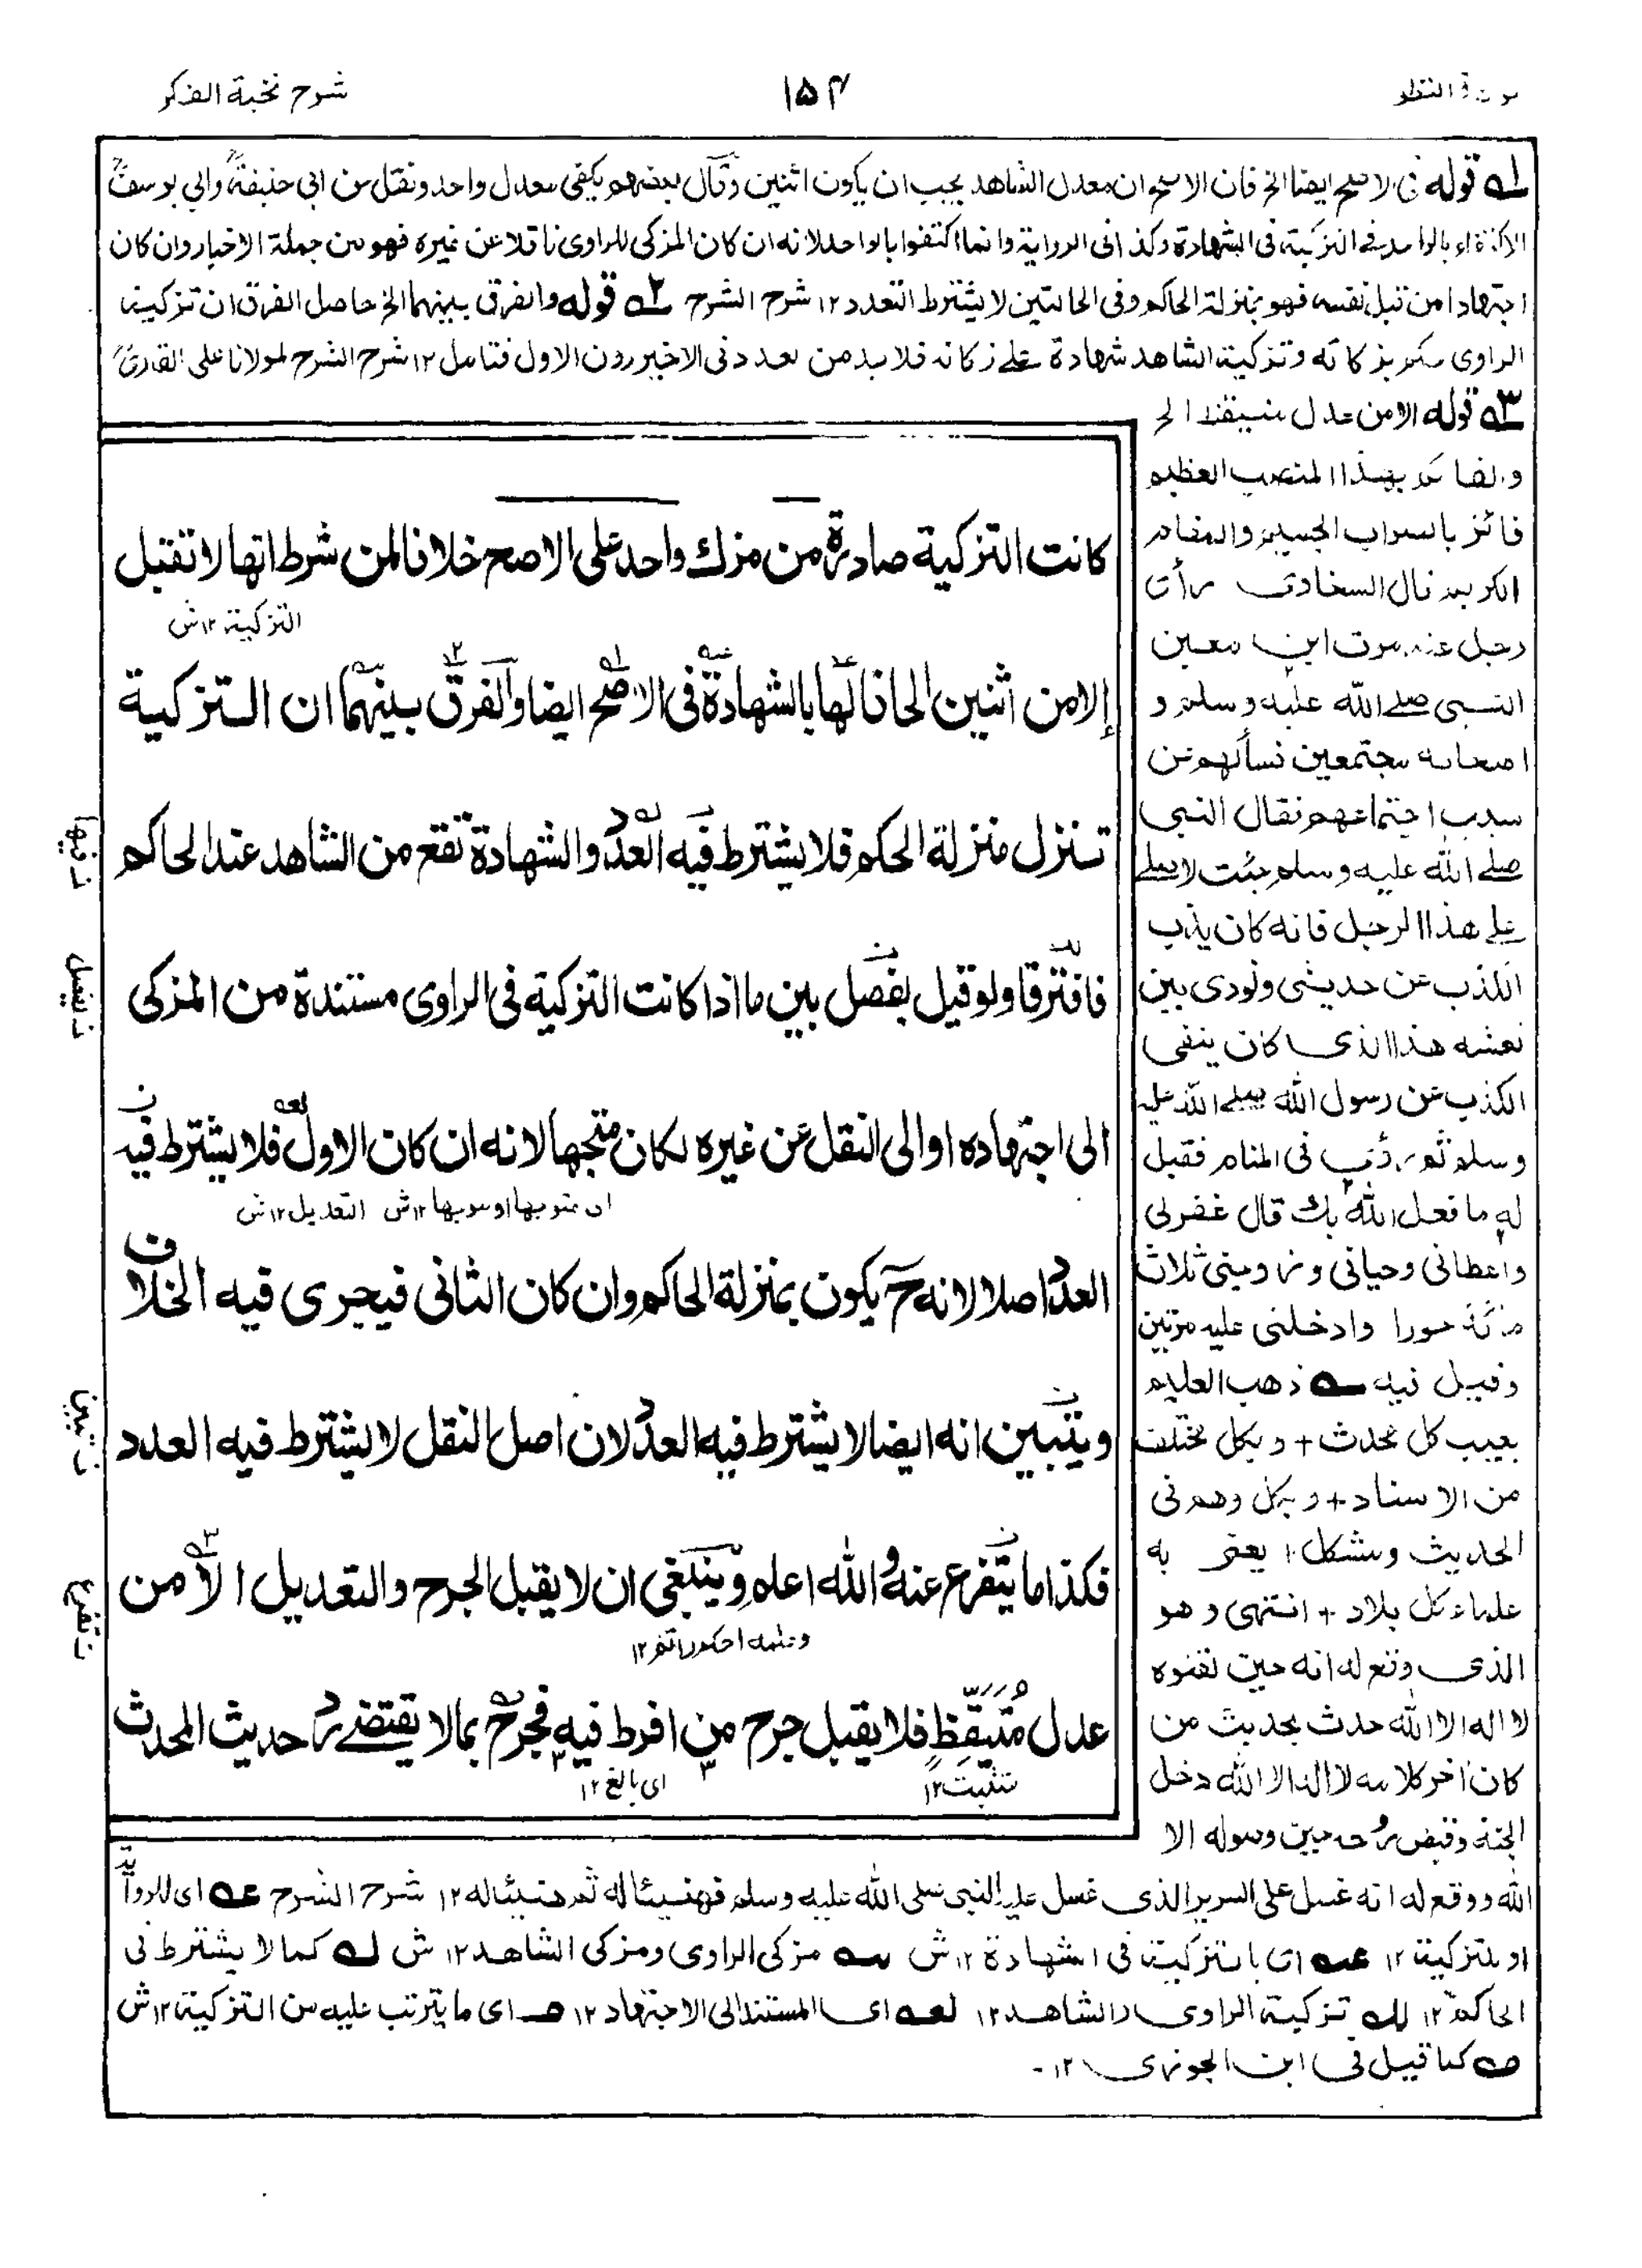 شرح نخبة الفكر
۱۵۴
نزهة النظر
۱ قوله فى الاصح ايضا الخ فان الاصح ان معدل الشاهد يجب ان يكون اثنين وقال بعضهم يكفى معدل واحد ونقل من ابى حنيفة وابى يوسف
الاكتفاء بالواحد فى التزكية فى الشهادة وكذا فى الرواية وانما اكتفوا بالواحد لانه ان كان المزكى للراوى ناقلا عن غيره فهو من جملة الاخبار وان كان
اجتهادا من قبل نفسه فهو بمنزلة الحاكم وفى الحالتين لا يشترط التعدد ۱۲ شرح الشرح ۲ قوله والفرق بينهما الخ حاصل الفرق ان تزكية
الراوى حكم بزكاته وتزكية الشاهد شهادة على زكاته فلا بد من تعدد فى الاخير دون الاول فتامل ۱۲ شرح الشرح لمولانا على القارى
۳ قوله الا من عدل متيقظ الخ
والقائم بهذا المنصب العظيم
فائز بالثواب الجسيم والمقام
الكريم قال السخاوى رأى
رجل عند موت ابن معين
النبى صلے الله عليه وسلم و
اصحابه مجتمعين فسألهم عن
سبب اجتماعهم فقال النبى
صلے الله عليه وسلم جئت لاصلے
علے هذا الرجل فانه كان يذب
الكذب عن حديثى ونودى بين
نعشه هذا الذى كان ينفى
الكذب عن رسول الله صلے الله عليه
وسلم ثم رئى فى المنام فقيل
له ما فعل الله بك قال غفر لى
واعطانى وحبانى وزوجنى ثلاث
مائة حورا وادخلنى عليه مرتين
وقيل فيه ذهب العليم
بعيب كل محدث + وبكل مختلف
من الاسناد + وبكل وهم فى
الحديث ومشكل يعنى به
علماء كل بلاد + انتهى وهو
الذى وقع له انه حين لقنوه
لا اله الا الله حدث بحديث من
كان اخر كلامه لا اله الا الله دخل
الجنة وقبض روحه حين وصوله الا
كانت التزكية صادرة من مزك واحد على الاصح خلافا لمن شرط انها لا تقبل
التزكية ۱۲ ش
إلا من اثنين الحاقا لها بالشهادة فى الاصح ايضا والفرق بينهما ان التزكية
تنزل منزلة الحكم فلا يشترط فيه العدد والشهادة تقع من الشاهد عند الحاكم
ن فيها
فافترقا ولو قيل يفصل بين ما اذا كانت التزكية فى الراوى مستندة من المزكى
ن يفصل
الى اجتهاده او الى النقل عن غيره لكان متجها لانه ان كان الاول فلا يشترط فيه
التعديل ۱۲ ش
العدد اصلا لانه ح يكون بمنزلة الحاكم وان كان الثانى فيجرى فيه الخلاف
ويتبين انه ايضا لا يشترط فيه العدد لان اصل النقل لا يشترط فيه العدد
ن تبين
فكذا ما يتفرع عنه والله اعلم وينبغى ان لا يقبل الجرح والتعديل الا من
ن تفرع
وعلمه احكم واتم ۱۲
عدل مُتَيَقِّظٍ فلا يقبل جرح من افرط فيه فجرح بما لا يقتضے رد حديث المحدث
متثبت ۱۲ اى بالغ ۱۲
الله ووقع له انه غسل على السرير الذى غسل عليه النبى صلى الله عليه وسلم فهنيئا له ثم هنيئا له ۱۲ شرح الشرح عه اى للرواية
او للتزكية ۱۲ عه اى بالتزكية فى الشهادة ۱۲ ش سه مزكى الراوى ومزكى الشاهد ۱۲ ش له كما لا يشترط فى
الحاكم ۱۲ لله تزكية الراوى والشاهد ۱۲ لعه اى المستند الى الاجتهاد ۱۲ صه اى ما يترتب عليه من التزكية ۱۲ ش
صه كما قيل فى ابن الجوزى ۱۲ -